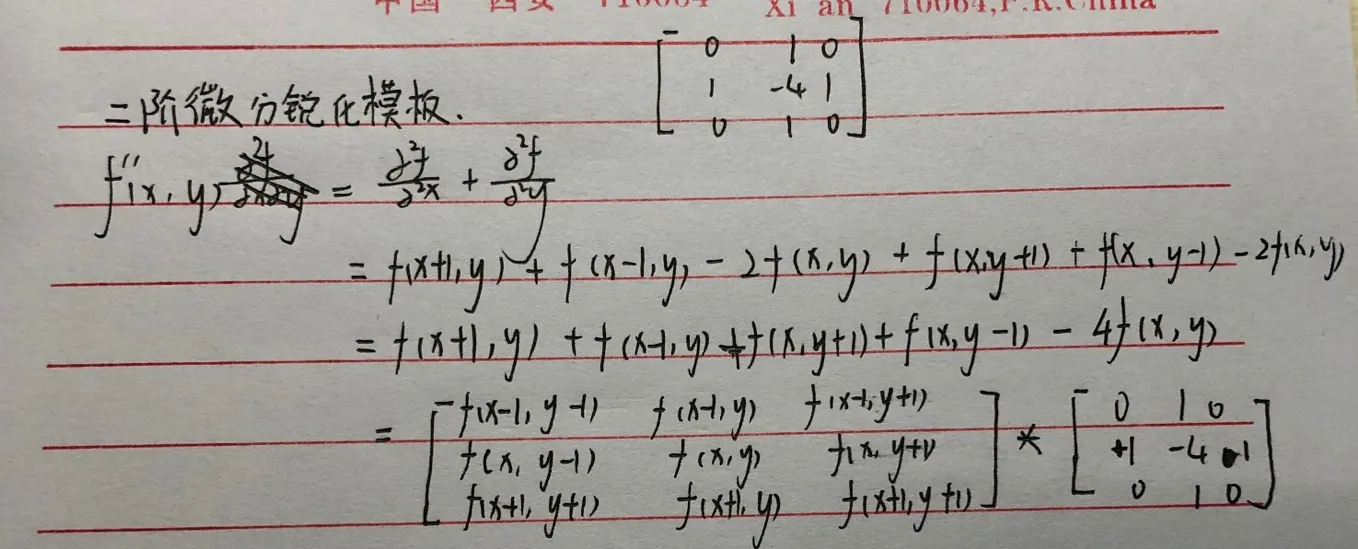 中国 西安 710064 Xi'an 710064, P.R.China
二阶微分锐化模板. [0 1 0; 1 -4 1; 0 1 0]
f''(x, y) = ∂²f/∂²x + ∂²f/∂²y
= f(x+1, y) + f(x-1, y) - 2f(x, y) + f(x, y+1) + f(x, y-1) - 2f(x, y)
= f(x+1, y) + f(x-1, y) + f(x, y+1) + f(x, y-1) - 4f(x, y)
= [f(x-1, y-1) f(x-1, y) f(x-1, y+1); f(x, y-1) f(x, y) f(x, y+1); f(x+1, y+1) f(x+1, y) f(x+1, y+1)] * [0 1 0; +1 -4 1; 0 1 0]